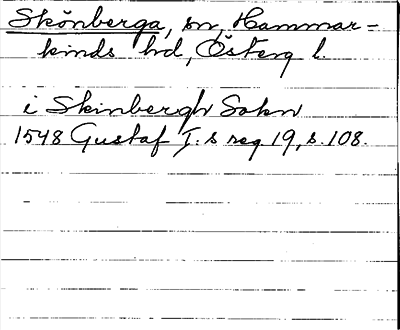 Skönberga, sn, Hammar=
kinds hd, Österg l.
i Skinbergh Sokn
1548 Gustaf I:s reg. 19, s. 108.